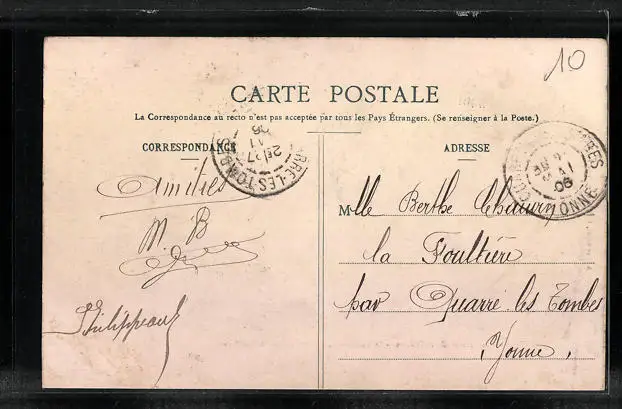 10
CARTE POSTALE
La Correspondance au recto n'est pas acceptée par tous les Pays Étrangers. (Se renseigner à la Poste.)
CORRESPONDANCE
Amitiés
M B
Philippeau
RRE-LES-TOMBES
ADRESSE
Mlle Berthe Chauvin
la Foultière
par Quarré les Tombes
Yonne.
YONNE
08